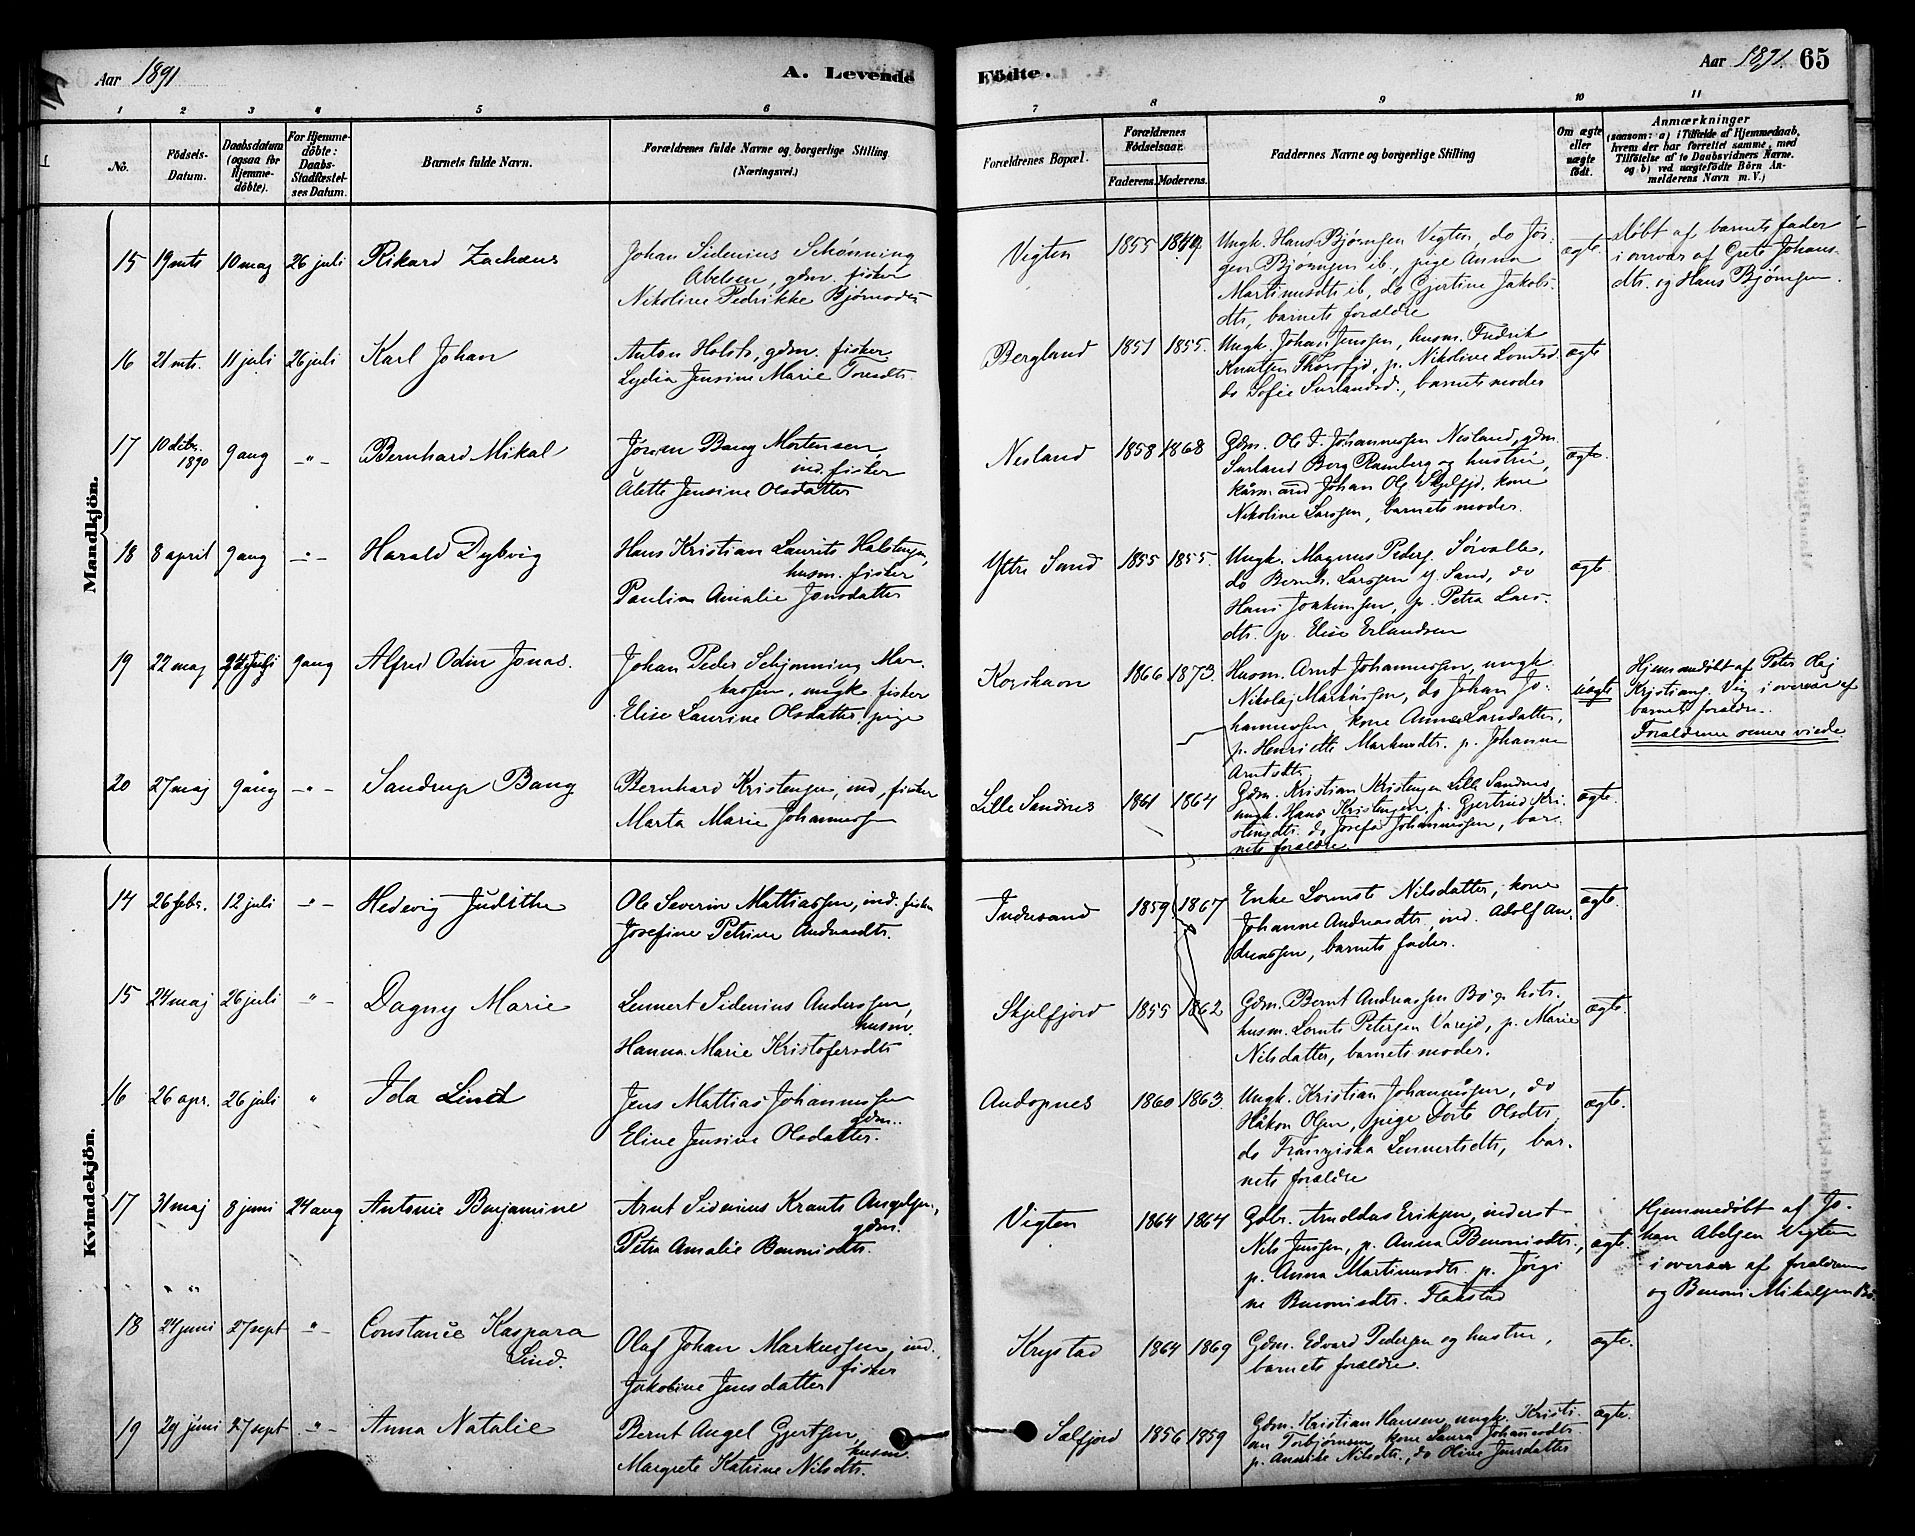 Aar 1891
A. Levende
Födte.
Aar 1891.
65
1 2 3 4 5 6 7 8 9 10 11
No.
Födsels-
Datum.
Daabsdatum
(ogsaa for
Hjemme-
döbte).
For Hjemme-
döbte:
Daabs-
Stadfæstel-
ses Datum.
Barnets fulde Navn.
Forældrenes fulde Navne og borgerlige Stilling
(Næringsvei.)
Forældrenes Bopæl.
Forældrenes
Födselsaar.
Faderens. Moderens.
Faddernes Navne og borgerlige Stilling
Om ægte
eller
uægte
födt.
Anmærkninger
(saasom: a) i Tilfælde af Hjemmedaab,
hvem der har forrettet samme, med
Tilföielse af to Daabsvidners Navne.
og b) ved uægtefödte Börn An-
melderens Navn m. V.)
Mandkjön.
15 19 mts 10 maj 26 juli Rikard Zachæus
Johan Sidenius Schønning
Abelsen, gdm. fisker
Nikoline Fedrikke Bjørnsdtr
Vigten 1855 1849
Ungk. Hans Bjørnsen Vigten, do Jør-
gen Bjørnsen ib, pige Anna
Martinusdtr ib, do Gjertine Jakobs-
dtr, barnets forældre
ægte.
Døbt af barnets fader
i overvær af Grete Johans-
dtr. og Hans Bjørnsen.
16 21 mts. 11 juli 26 juli Karl Johan
Anton Holst, gdm. fisker
Lydia Jensine Marie
Bergland 1851 1855.
Ungk. Johan Jenssen, husm. Fredrik
Knutsen p. Nikoline
do Sofie barnets moder
ægte
17 10 dcbr. 1890 9 aug -"- Bernhard Mikal
Jørgen Bang Mortensen,
ind. fisker
Alette Jensine Olsdatter
Nesland 1858 1868
Gdm. Ole J. Johannessen Nesland, gdm.
Surland Berg Ramberg og hustru,
Johan Ols. Skjelfjd, kone
Nikoline Larssen, barnets moder.
ægte.
18 8 april 9 aug -"- Harald Dybvig
Hans Kristian Laurits Halstensen,
husm. fisker
Paulina Amalie Jonsdatter
Yttre Sand 1855 1855.
Ungk. Magnus Peders. Sørvalle,
do Bernh. Larssen y. Sand, do
Hans Joakimsen, p. Petra Lars-
dtr. p. Elise Erlandsen
ægte.
19 22 maj 24 juli 9 aug Alfred Odin Jonas.
Johan Peder Schjønning Mar-
kussen, ungk. fisker
Elise Laurine Olsdatter, pige
1866 1873.
Husm. Arnt Johannessen, ungk.
Nikolaj Markussen, do Johan Jo-
hannessen kone Anna Larsdatter,
p. Henriette Markusdtr. p. Johanna
Arntsdtr.
uægte
Hjemmedøbt af Peter Olaj
Kristians. Vig i overvær af
barnets forældre.
Forældrene senere viede
20 27 maj 9 aug -"- Sandrup Bang
Bernhard Kristensen, ind, fisker
Marta Marie Johannessen
Lille Sandnes 1861 1864
Gdm. Kristian Kristensen Lille Sandnes
ungk. Hans Kristensen, p. Gjertrud Kri-
stensdtr. do Josefa Johannessen, bar-
nets forældre.
ægte.
Kvindekjön.
14 26 febr. 12 juli -"- Hedevig Judithe
Ole Severin Mattiassen, ind. fisker
Josefine Petrine Andreasdtr.
Indresand 1859. 1867
Enke Lornts Nilsdatter, kone
Johanne Andreasdtr, ind. Adolf An-
dreassen, barnets fader.
ægte.
15 24 maj 26 juli -"- Dagny Marie
Lennert Sidenius Anderssen,
husm.
Hanna Marie Kristofersdtr
Skjelfjord 1855 1862
Gdm. Bernt Andreassen Bø & hstr.
husm. Lornts Petersen Varejd, p. Marie
Nilsdatter, barnets moder.
ægte.
16 26 apr. 26 juli " Ida Lind
Jens Mattias Johannessen
gdm.
Eline Jensine Olsdatter.
Andopnes 1860 1863.
Ungk. Kristian Johannessen, do
Håkon Olsen, pige Dorte Olsdtr,
do Franziska Lennertsdtr, bar-
nets forældre
ægte.
17 31 maj 8 juni 24 aug Antonie Benjamine
Arnt Sidenius Krants Angelsen,
gdm.
Petra Amalie Benonisdtr.
Vigten 1864 1864
Gdbr. Arnoldus Eriksen, inderst
Nils Jenssen, p. Anna Benonisdtr.,
p. Anna Martinusdtr. p. Jørgi-
ne Benonisdtr. Flakstad
ægte.
Hjemmedøbt af Jo-
han Abelsen Vigten
i overvær af forældrene
og Benoni Mikalsen Bø.
18 24 juni 27 sept -"- Constance Kaspara
Lind.
Olaf Johan Markussen, ind.
fisker
Jakobine Jensdatter
Krystad 1864 1869
Gdm. Edvard Pedersen og hustru,
barnets forældre
ægte.
19 29 juni 27 sept -"- Anna Natalie
Bernt Angel Gjertsen
husm.
Margrete Katrine Nilsdtr.
Selfjord 1856 1859
Gdm. Kristian Hansen, ungk. Kristi-
an Torbjørnsen, kone Laura Johansdtr.
p. Annike Nilsdtr., do Oline Jensdatter
ægte.